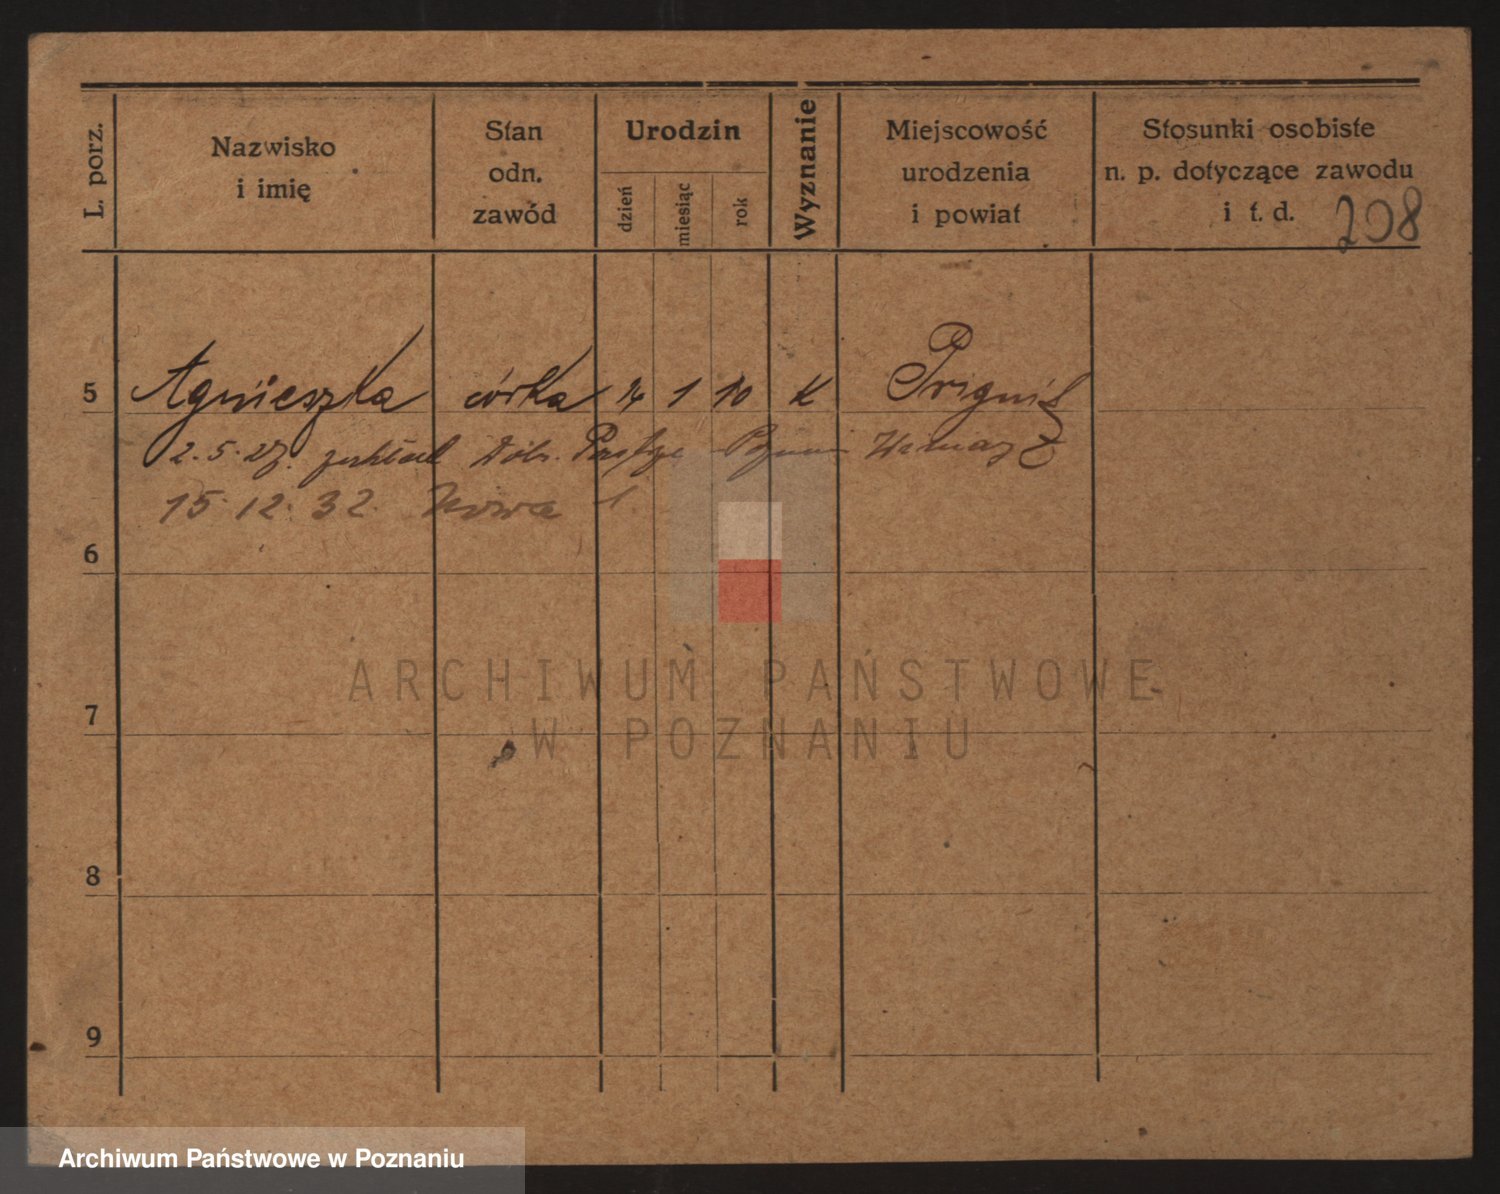 L. porz.
Nazwisko
i imię
Stan
odn.
zawód
Urodzin
dzień
miesiąc
rok
Wyznanie
Miejscowość
urodzenia
i powiat
Stosunki osobiste
n. p. dotyczące zawodu
i t. d.
208
5
Agnieszka córka 14 1 10 K
2. 5. 27.
15. 12. 32. Nowa 1.
6
7
8
9
ARCHIWUM PAŃSTWOWE
W POZNANIU
Archiwum Państwowe w Poznaniu